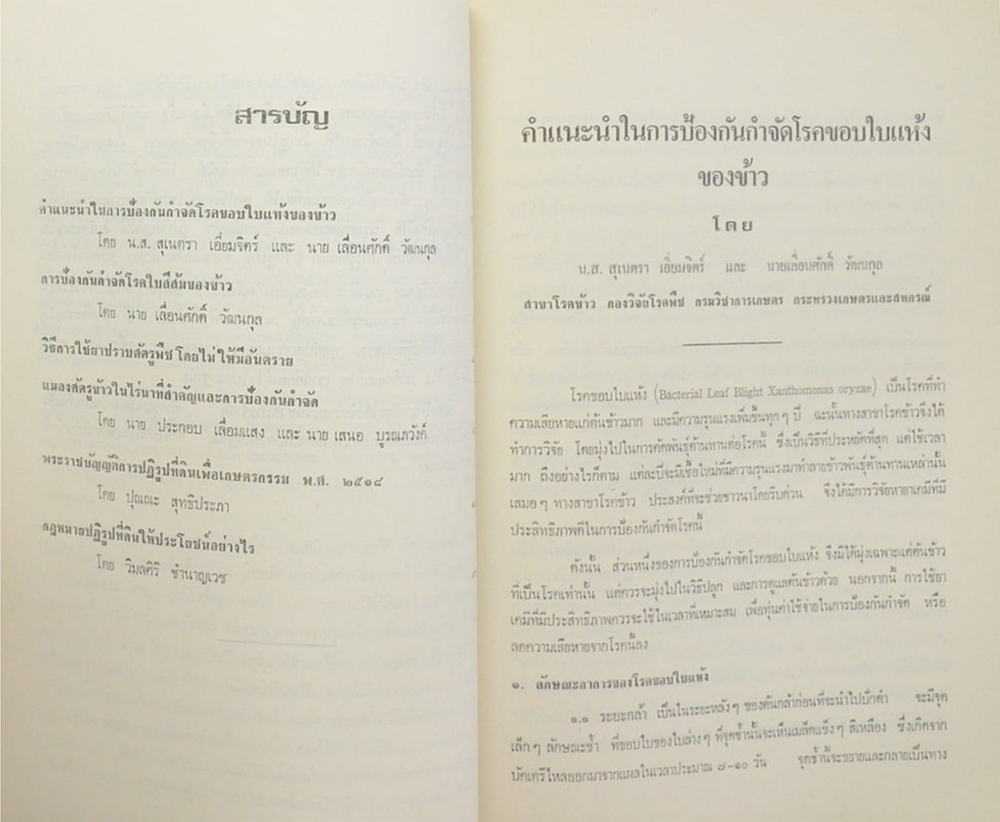 สารบัญ
คำแนะนำในการป้องกันกำจัดโรคขอบใบแห้งของข้าว
โดย น.ส. สุเนตรา เอี่ยมจิตร์ และ นาย เลื่อนศักดิ์ วัฒนกุล
การป้องกันกำจัดโรคใบสีส้มของข้าว
โดย นาย เลื่อนศักดิ์ วัฒนกุล
วิธีการใช้ยาปราบศัตรูพืช โดยไม่ให้มีอันตราย
แมลงศัตรูข้าวในไร่นาที่สำคัญและการป้องกันกำจัด
โดย นาย ประกอบ เลื่อมแสง และ นาย เสนอ บุรณภวังค์
พระราชบัญญัติการปฏิรูปที่ดินเพื่อเกษตรกรรม พ.ศ. ๒๕๑๘
โดย ปุณณะ สุทธิประภา
กฎหมายปฏิรูปที่ดินให้ประโยชน์อย่างไร
โดย วิมลศิริ ชำนาญเวช
คำแนะนำในการป้องกันกำจัดโรคขอบใบแห้ง
ของข้าว
โดย
น.ส. สุเนตรา เอี่ยมจิตร์ และ นายเลื่อนศักดิ์ วัฒนกุล
สาขาโรคข้าว กองวิจัยโรคพืช กรมวิชาการเกษตร กระทรวงเกษตรและสหกรณ์
โรคขอบใบแห้ง (Bacterial Leaf Blight Xanthomonas oryzae) เป็นโรคที่ทำ
ความเสียหายแก่ต้นข้าวมาก และมีความรุนแรงเพิ่มขึ้นทุกๆ ปี ฉะนั้นทางสาขาโรคข้าวจึงได้
ทำการวิจัย โดยมุ่งไปในการคัดพันธุ์ต้านทานต่อโรคนี้ ซึ่งเป็นวิธีที่ประหยัดที่สุด แต่ใช้เวลา
มาก ถึงอย่างไรก็ตาม แต่ละปีจะมีเชื้อใหม่ที่มีความรุนแรงมาทำลายข้าวพันธุ์ต้านทานเหล่านั้น
เสมอๆ ทางสาขาโรคข้าว ประสงค์ที่จะช่วยชาวนาโดยรีบด่วน จึงได้มีการวิจัยหายาเคมีที่มี
ประสิทธิภาพดีในการป้องกันกำจัดโรคนี้
ดังนั้น ส่วนหนึ่งของการป้องกันกำจัดโรคขอบใบแห้ง จึงมิได้มุ่งเฉพาะแต่ต้นข้าว
ที่เป็นโรคเท่านั้น แต่ควรจะมุ่งไปในวิธีปลูก และการดูแลต้นข้าวด้วย นอกจากนี้ การใช้ยา
เคมีที่มีประสิทธิภาพควรจะใช้ในเวลาที่เหมาะสม เพื่อทุ่นค่าใช้จ่ายในการป้องกันกำจัด หรือ
ลดความเสียหายจากโรคนี้ลง
๑. ลักษณะอาการของโรคขอบใบแห้ง
๑.๑ ระยะกล้า เป็นในระยะหลังๆ ของต้นกล้าก่อนที่จะนำไปปักดำ จะมีจุด
เล็กๆ ลักษณะช้ำ ที่ขอบใบของใบล่างๆ ที่จุดช้ำนั้นจะเห็นเมล็ดแข็งๆ สีเหลือง ซึ่งเกิดจาก
บัคเตรีไหลออกมาจากแผลในเวลาประมาณ ๘-๑๐ วัน จุดช้ำนี้จะขยายและกลายเป็นทาง